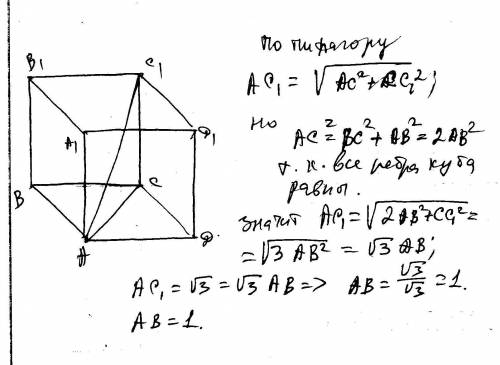 B₁
C₁
A₁
D₁
B
C
A
D
По пифагору
AC₁ = √(AC² + CC₁²);
но
AC² = BC² + AB² = 2AB²
т.к. все ребра куба
равны.
Значит AC₁ = √(2AB² + CC₁²) =
= √(3AB²) = √3 AB;
AC₁ = √3 = √3 AB => AB = √3/√3 = 1.
AB = 1.